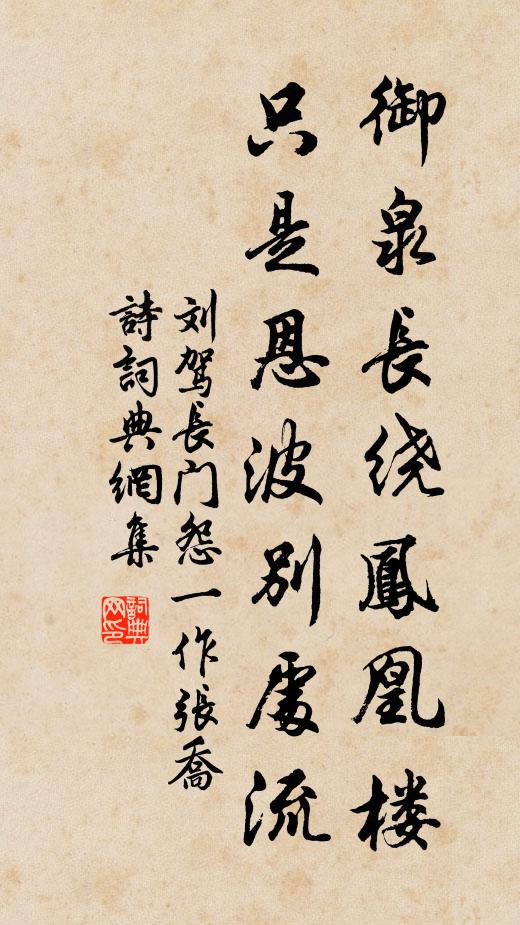 御泉長绕鳳凰楼
只是恩波別處流
刘駕長门怨一作張喬
詩詞典網集
詞典网印